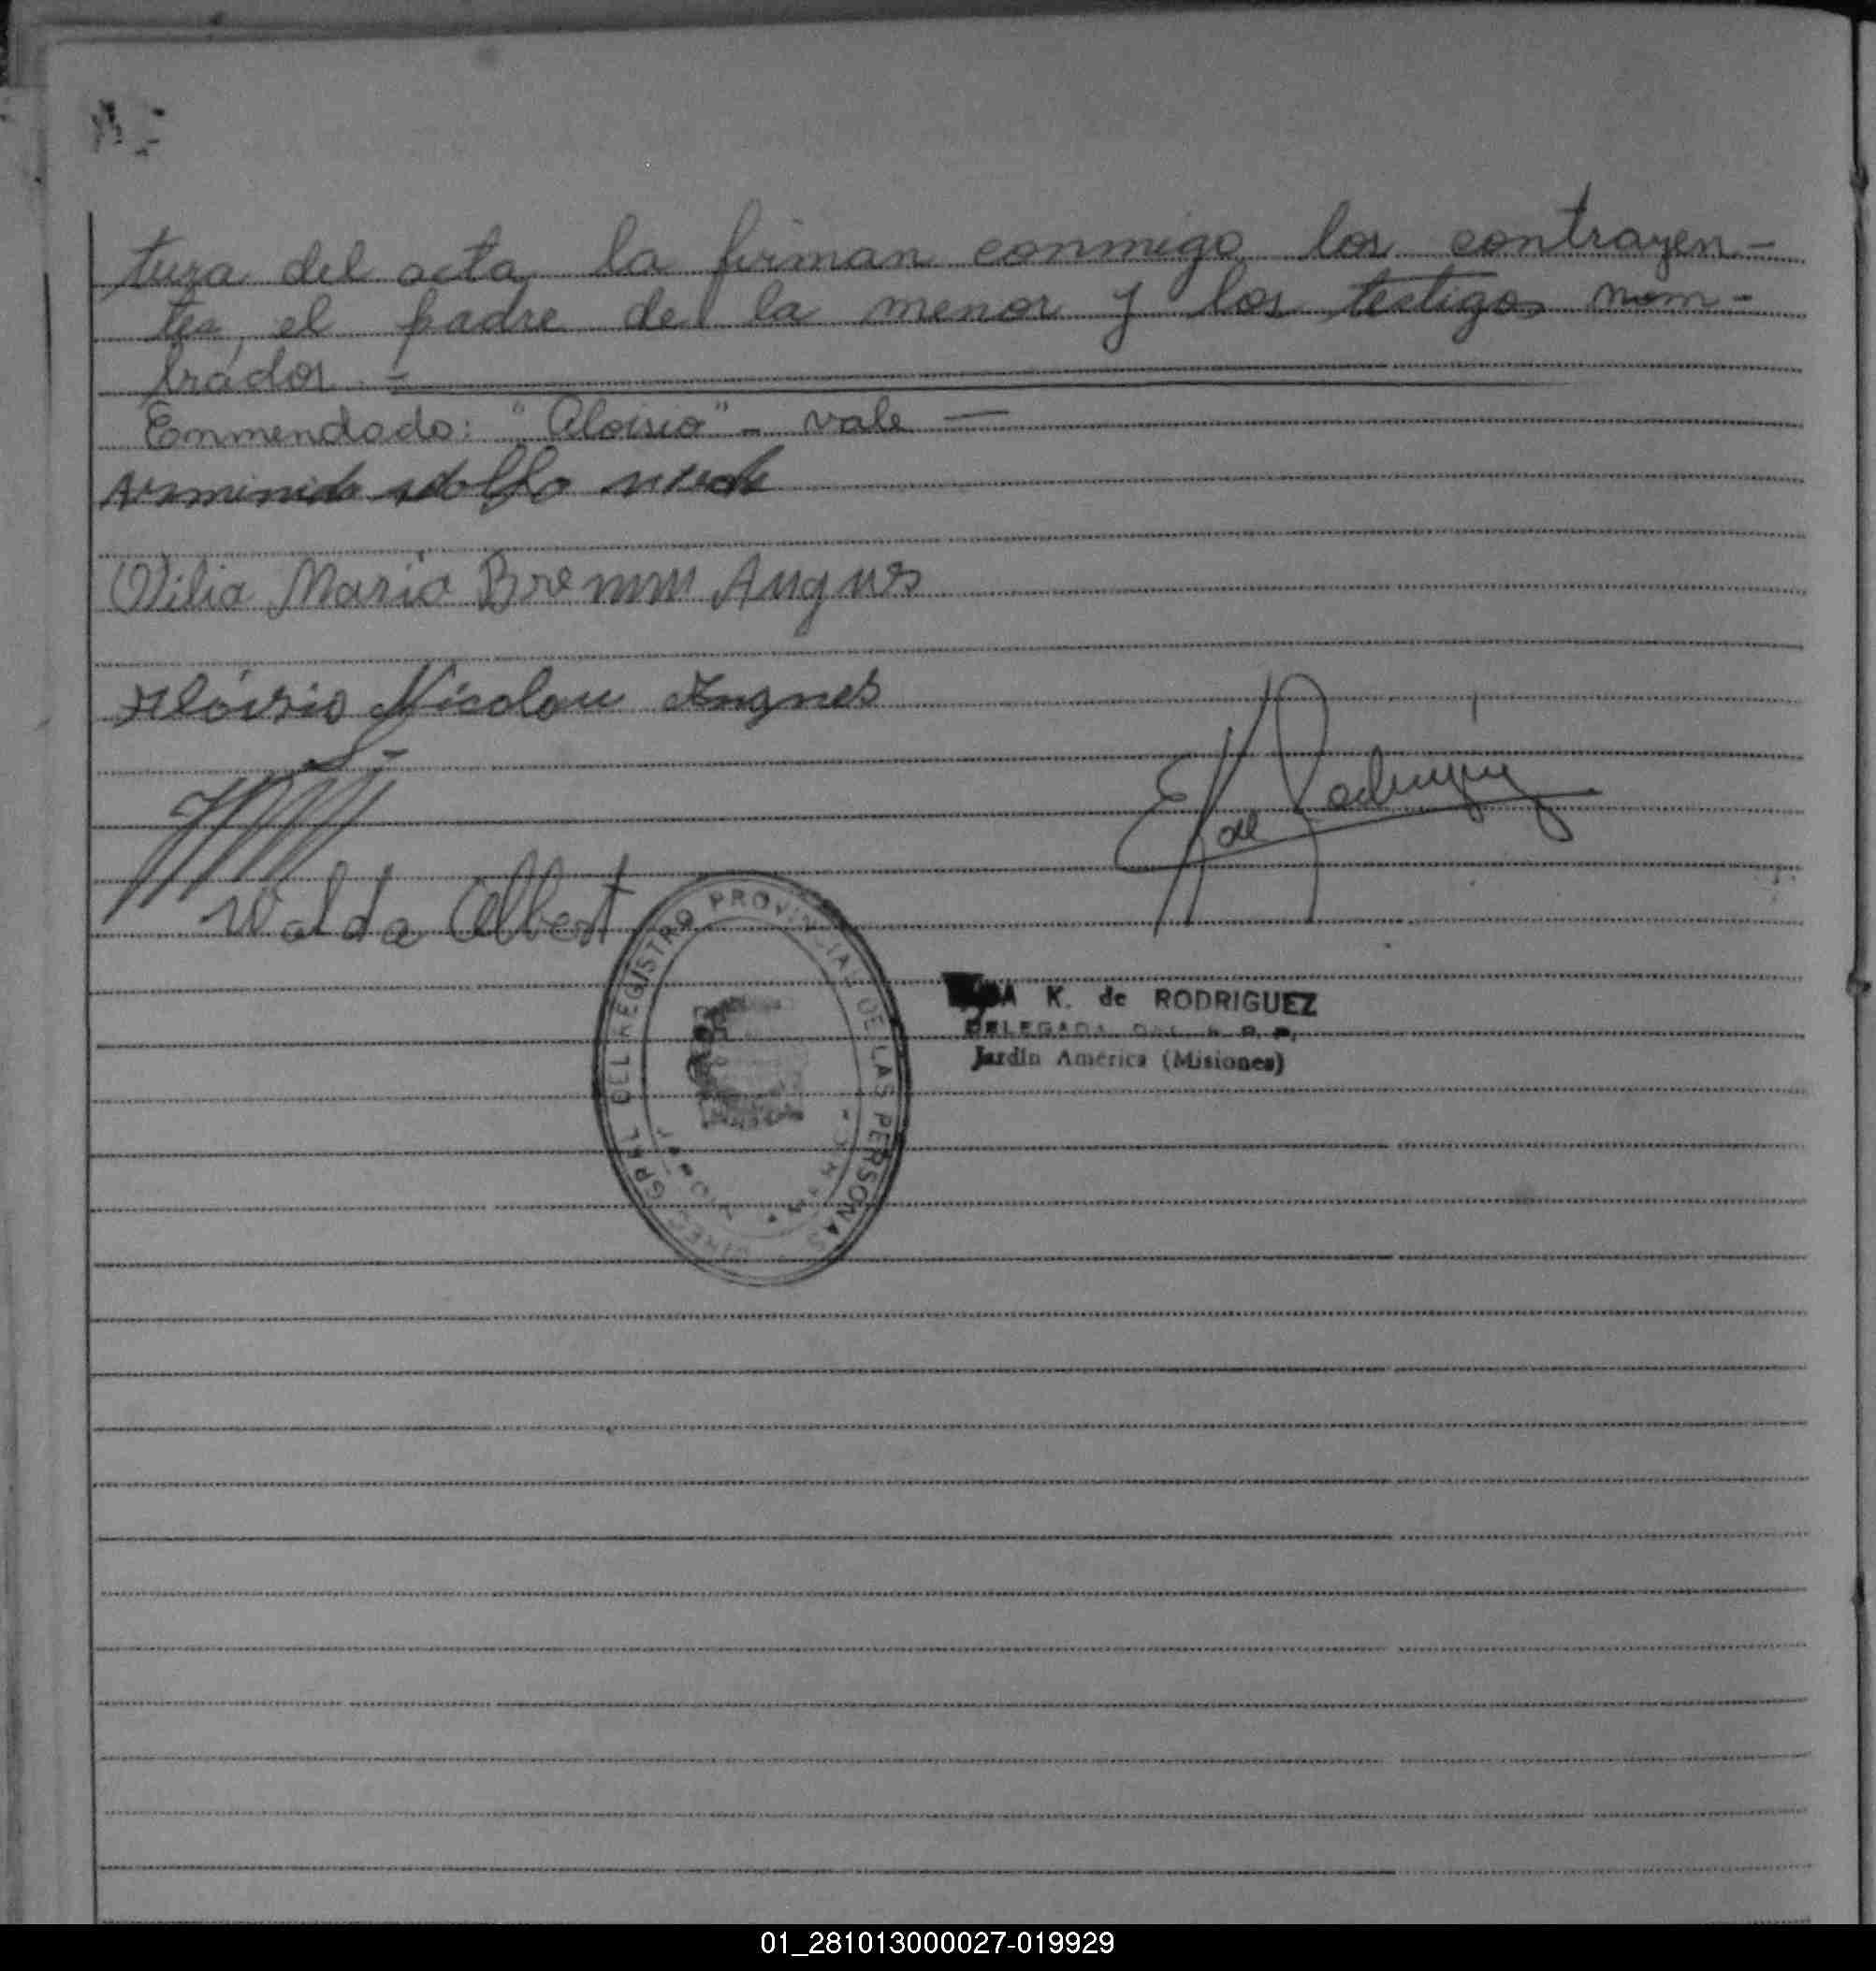 tura del acta, la firman conmigo los contrayen-
tes, el padre de la menor y los testigos nom-
brados.=
Enmendado: "Aloisio" - vale —
Armindo Adolfo
Vilia Maria Bremm Angnes
Aloisio Nicolau Angnes
de Rodriguez
Walda Albert
DIREC. GRAL. DEL REGISTRO PROVINCIAL DE LAS PERSONAS
K. de RODRIGUEZ
DELEGADA DEL R. P. P.
Jardín América (Misiones)
01_281013000027-019929